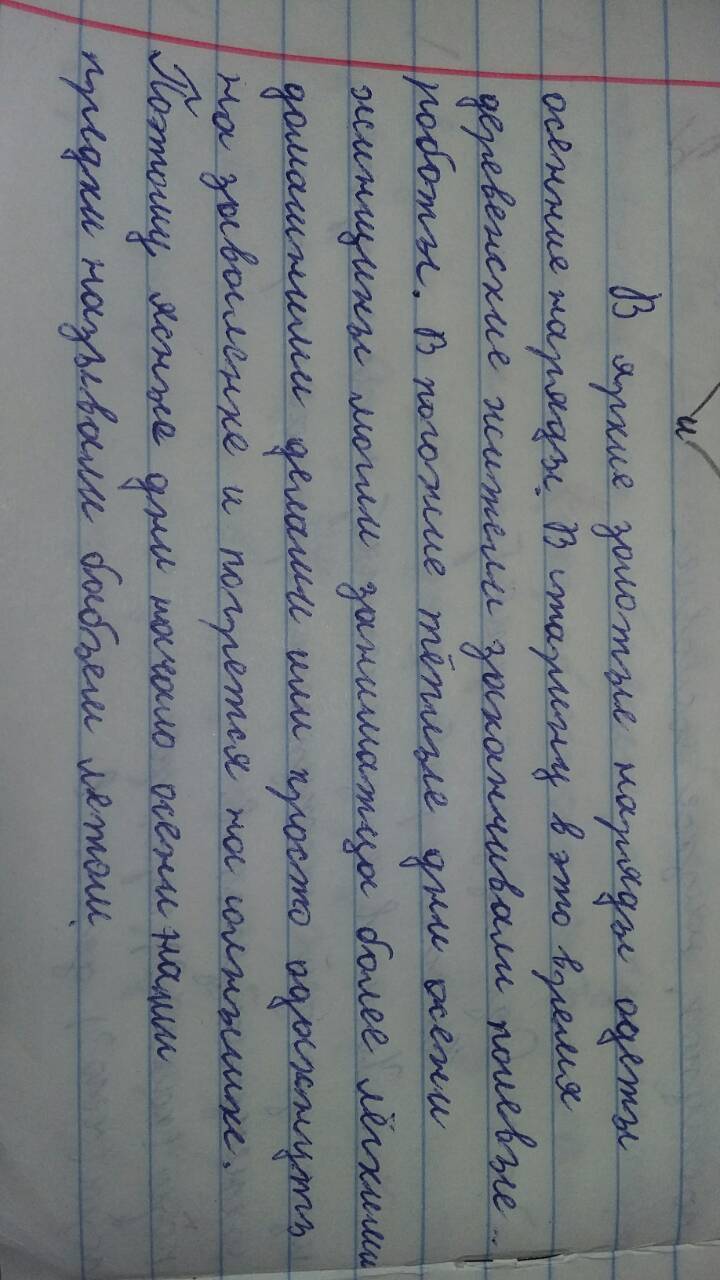 и
В яркие золотые наряды одеты
осенние наряды. В старину в это время
деревенские жижели заканчивали полевые
роботы. В погожие тёплые дни осени
жинщины могли заниматца более лёгкими
домашними делами или просто одыхнуть
на заваленке и погретса на солнышке.
Поэтому ясные дни начало осени наши
предки называли бабьем летом.